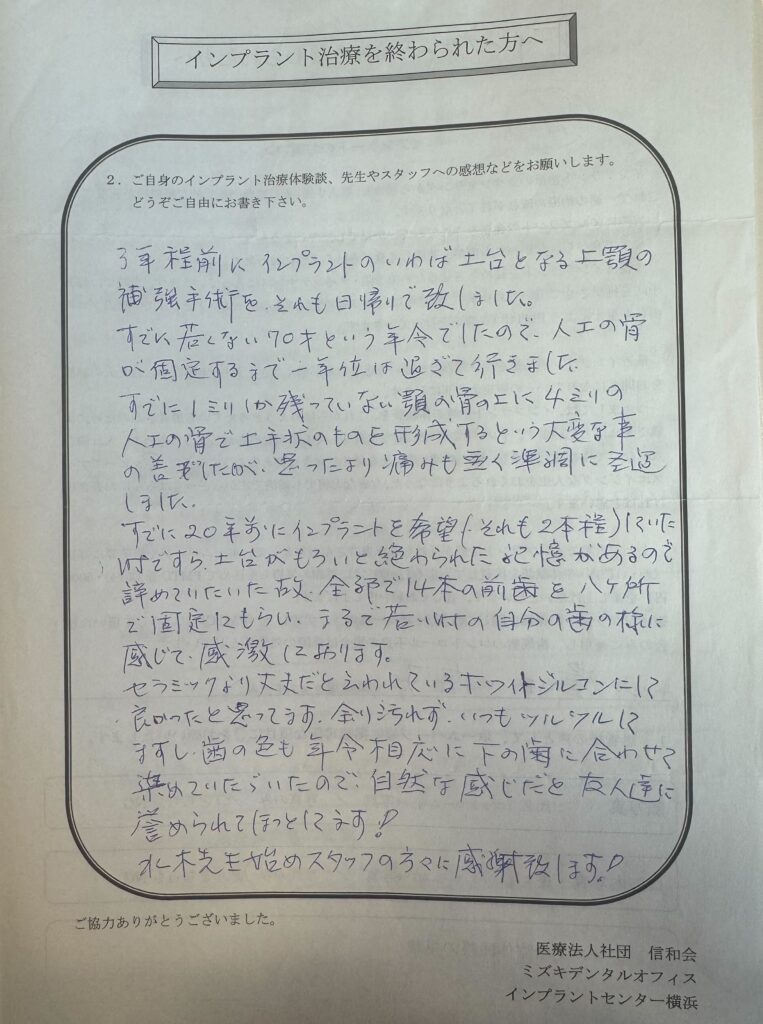 インプラント治療を終わられた方へ
2．ご自身のインプラント治療体験談、先生やスタッフへの感想などをお願いします。
どうぞご自由にお書き下さい。
3年程前に インプラントのいわば土台となる上顎の
補強手術を、それも日帰りで致しました。
すでに若くない70才という年令でしたので、人工の骨
が固定するまで一年位は過ぎて行きました。
すでに1ミリしか残っていない顎の骨の上に4ミリの
人工の骨で土手状のものを形成するという大変な事
の善でしたが、思ったより痛みも無く準調に
しました。
すでに20年前にインプラントを希望(それも2本程)していた
時ですら、土台がもろいと られた記憶があるので
諦めていたいた故、全部で14本の前歯を八ケ所
で固定してもらい、まるで若い時の自分の歯の様に
感じて、感激しております。
セラミックより丈夫だと云われているホワイトジルコンにして
良かったと思ってます。余り汚れず、いつもツルツルして
ますし、歯の色も年令相応に下の歯に合わせて
染めていただいたので、自然な感じだと友人達に
誉められてほっとしてます!
水木先生始めスタッフの方々に感謝致します!
ご協力ありがとうございました。
医療法人社団 信和会
ミズキデンタルオフィス
インプラントセンター横浜